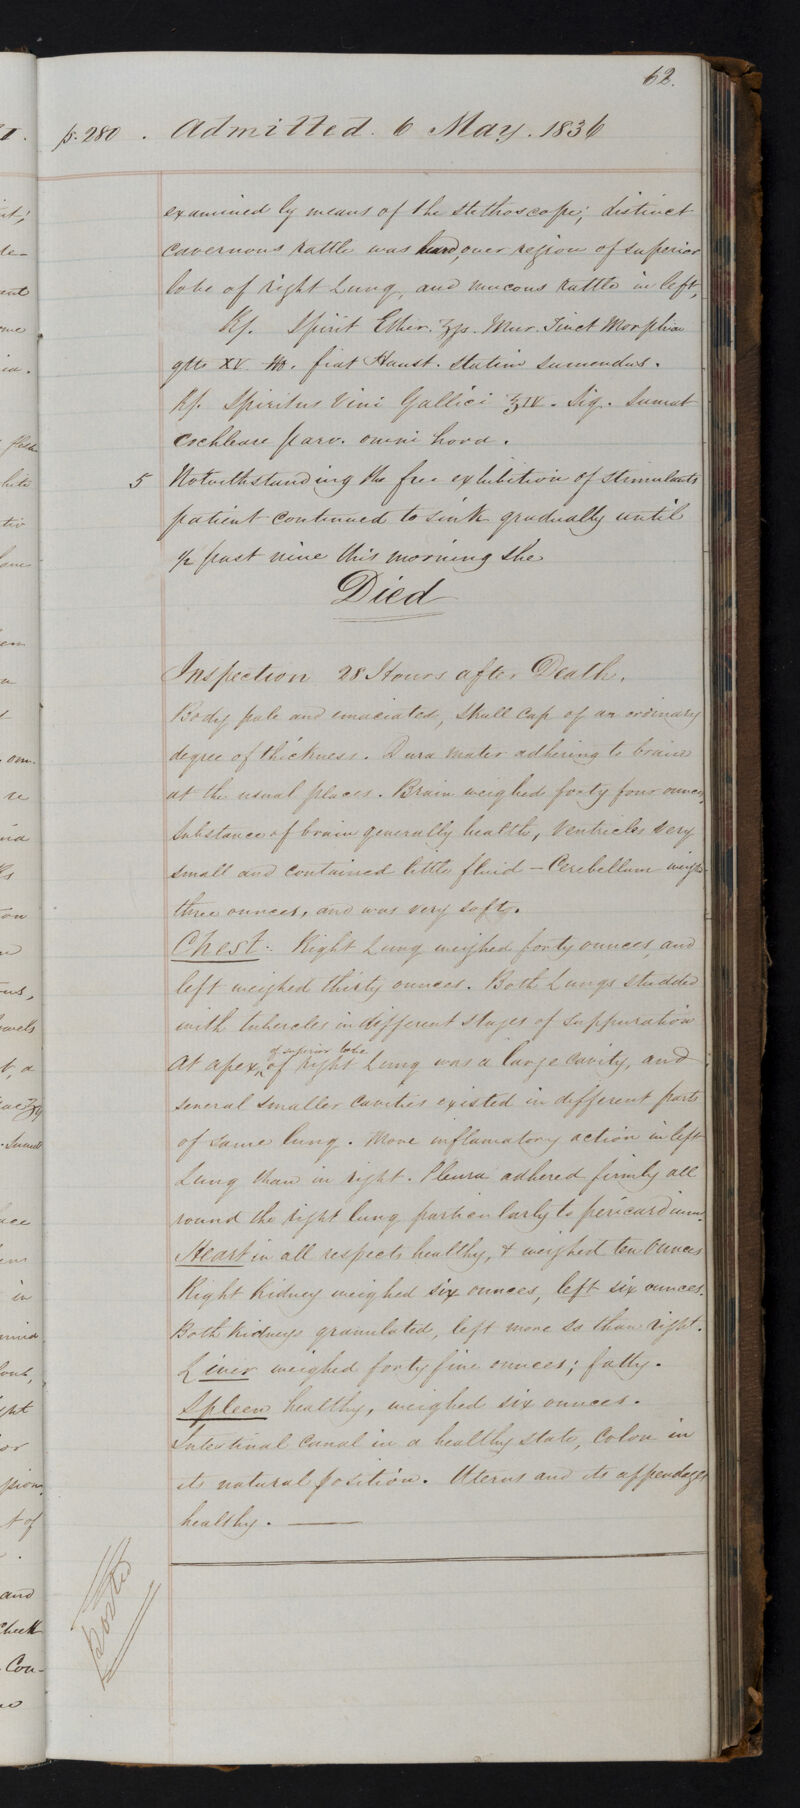 62.
p. 280. Admitted. 6 May. 1836
examined by means of the stethoscope; distinct
cavernous rattle was heard, over region of superior
lobe of right Lung, and mucous rattle in left,
Rp. Spirit Ether. ʒjs. Mur. Tinct Morphia
gtts XV. M. fiat Haust. statim sumendus.
Rp. Spiritus Vini Gallici ℥IV. Sig. Sumat
cochleare parv. omni hora.
5 Notwithstanding the free exhibition of stimulants
patient continued to sink gradually until
½ past nine this morning she
Died
Inspection 28 Hours after Death.
Body pale and emaciated, skull cap of an ordinary
degree of thickness. Dura Mater adhering to brain
at the usual places. Brain weighed forty four ounces,
Substance of brain generally health, Ventricles very
small and contained little fluid – Cerebellum weighed
three ounces, and was very soft.
Chest: Right Lung weighed forty ounces, and
left weighed thirty ounces. Both Lungs studded
with tubercles in different stages of suppuration
of superior lobe
At apex, of right Lung was a large cavity, and
several smaller cavities existed in different parts
of same lung. More inflamatory action in left
Lung than in right. Pleura adhered firmly all
round the right lung particularly to pericardium.
Heart in all respects healthy, & weighed ten Ounces
Right Kidney weighed six ounces, left six ounces.
Both Kidneys granulated, left more so than right.
Liver weighed forty five ounces; fatty.
Spleen healthy, weighed six ounces.
Intestinal Canal in a healthy state, Colon in
its natural position. Uterus and its appendages
healthy.
Posted